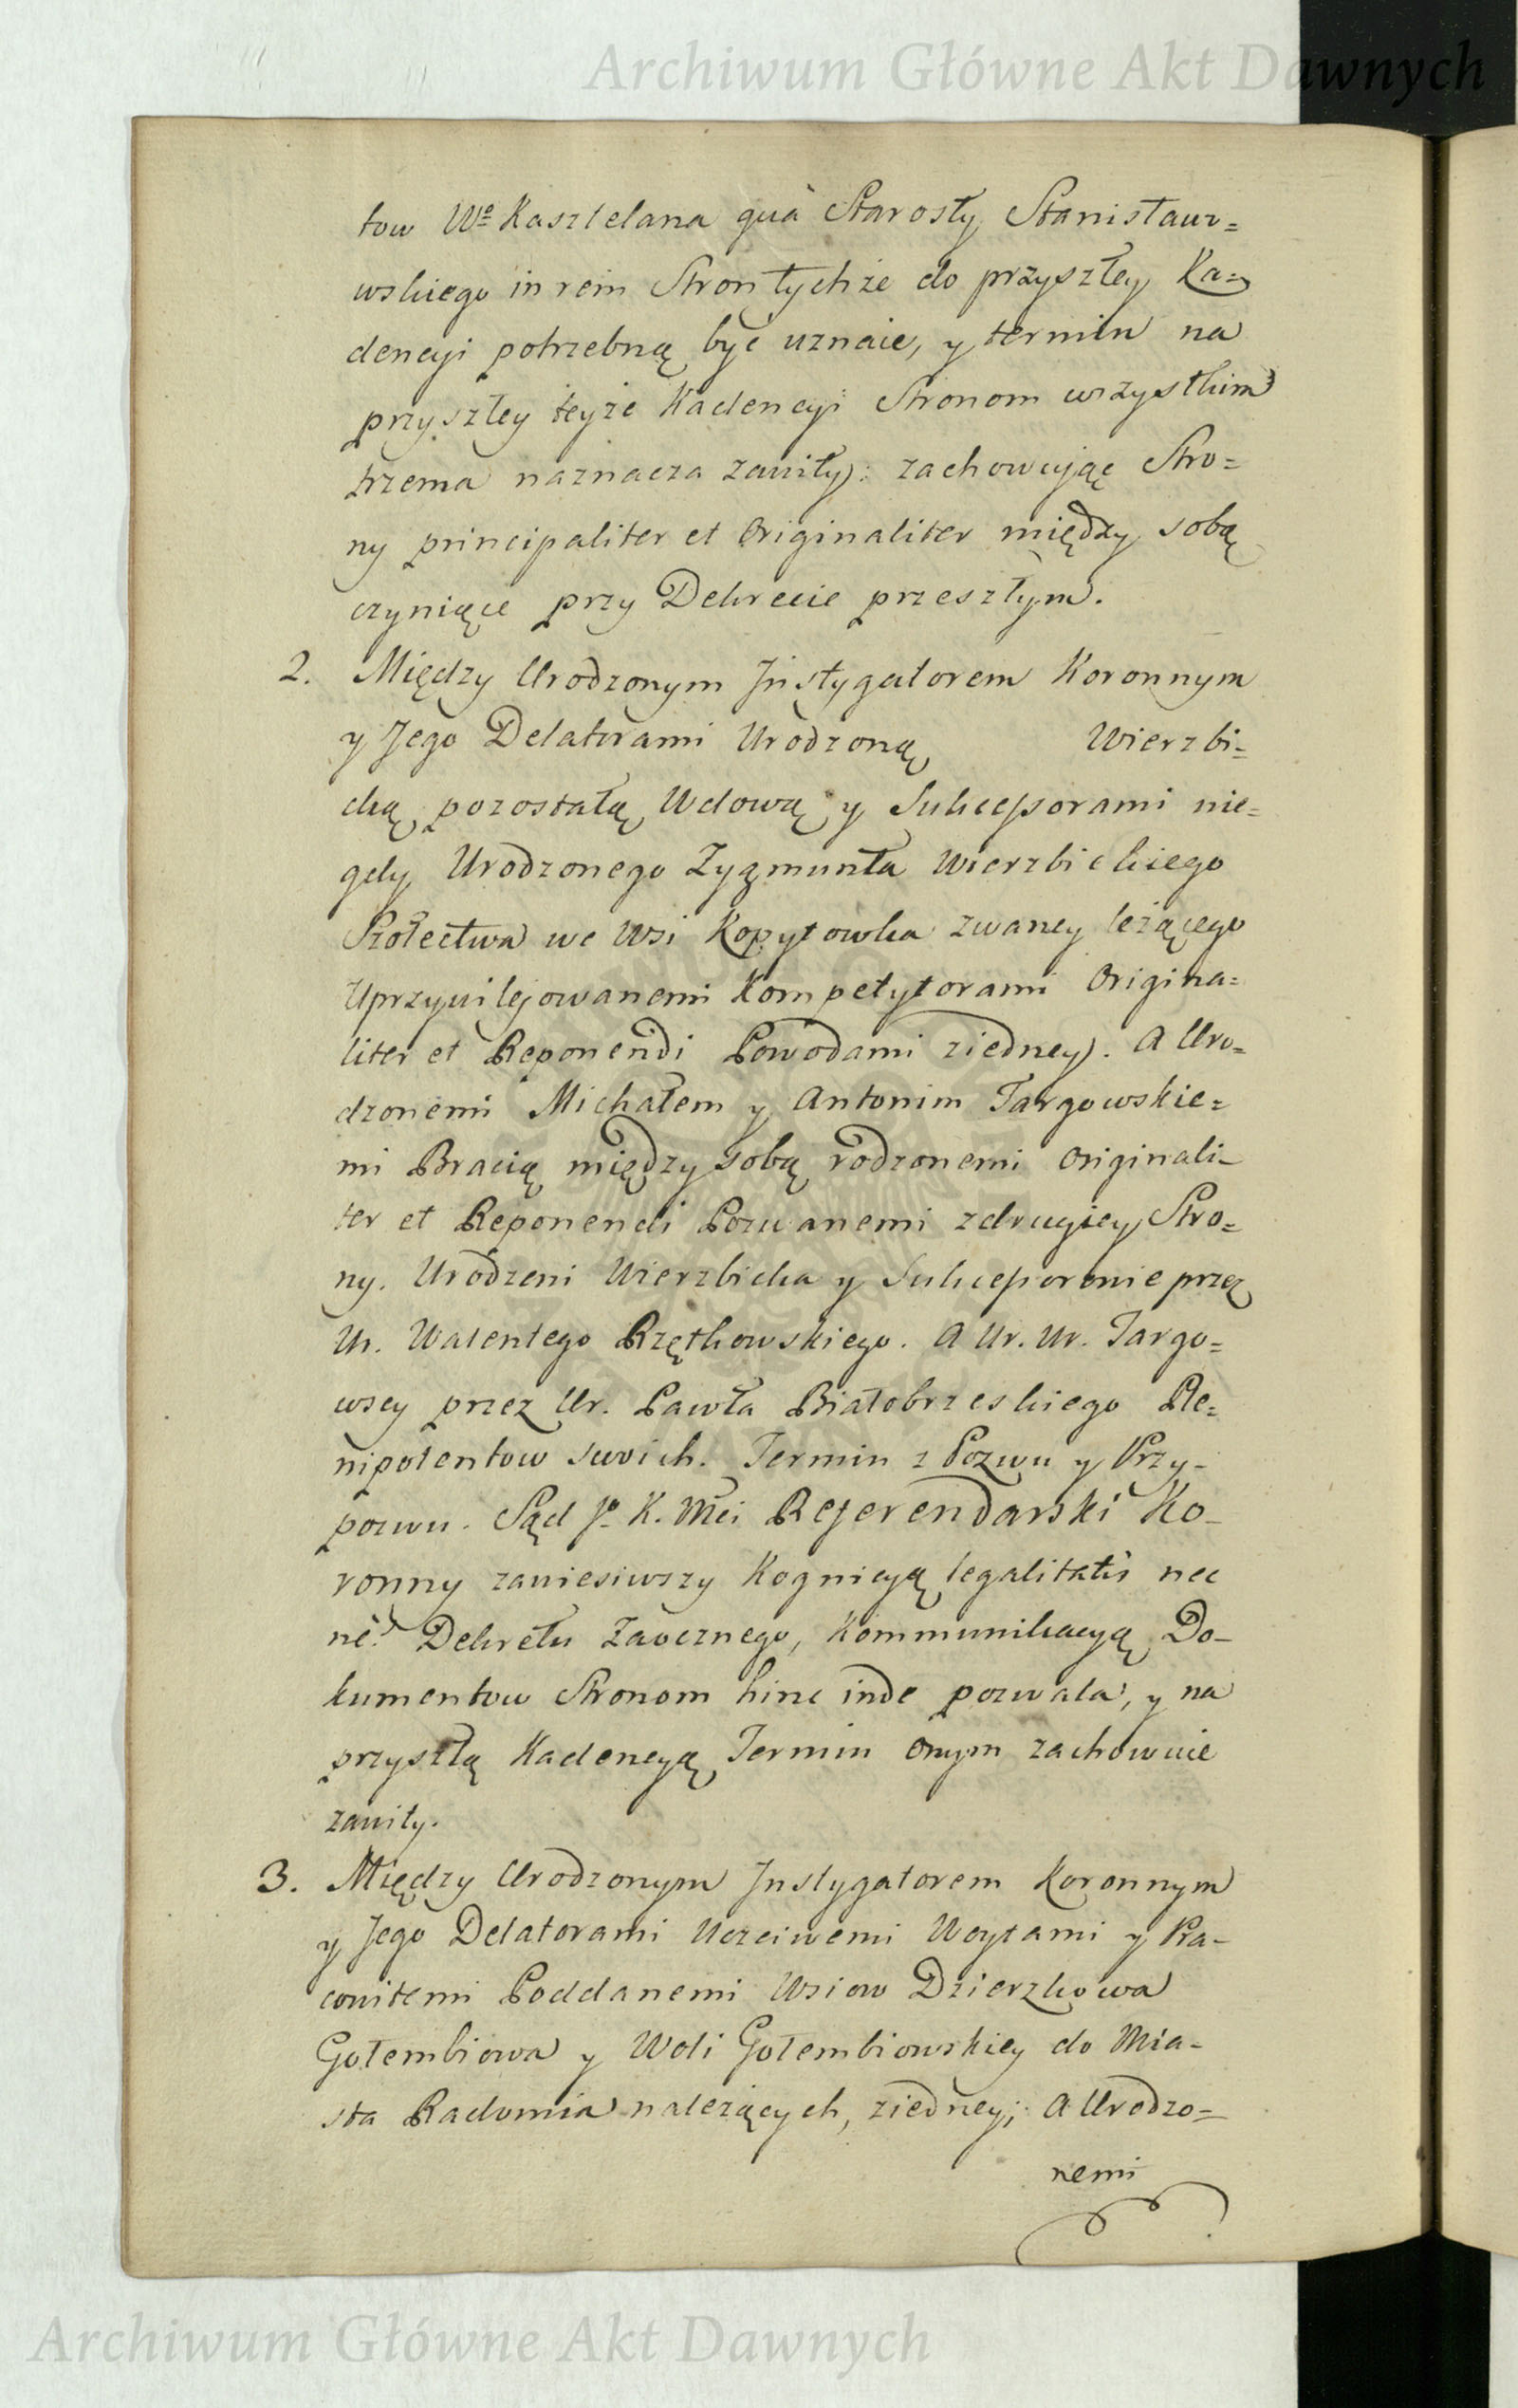 Archiwum Główne Akt Dawnych
tow Wº Kasztelana quà Starosty Stanisław=
wskiego in rem Stron tychże do przyszłey Ka=
dencyi potrzebną być uznaie, y termin na
przyszłey teyże Kadencyi Stronom wszystkim
trzema naznacza zawity: zachowując Stro=
ny principaliter et Originaliter między sobą
czyniące przy Dekrecie przeszłym.
2. Między Urodzonym Jnstygatorem Koronnym
y Jego Delatorami Urodzoną Wierzbi=
cką pozostałą Wdową y Sukcessorami nie=
gdy Urodzonego Zygmunta Wierzbickiego
Szołectwa we Wsi Kopytowka zwaney leżącego
Uprzywilejowanemi Kompetytorami Origina=
liter et Reponendi Powodami ziedney. A Uro=
dzonemi Michałem y Antonim Targowskie=
mi Bracią między sobą rodzonemi Originali=
ter et Reponendi Pozwanemi zdrugiey Stro=
ny. Urodzeni Wierzbicka y Sukcessorowie przez
Ur. Walentego Rzętkowskiego. A Ur. Ur. Targo=
wscy przez Ur. Pawła Białobrzeskiego Ple=
nipotentow swoich. Termin z Pozwu y Przy-
pozwu. Sąd Jº K. Mci Referendarski Ko-
ronny zawiesiwszy Kognicyą legalitatis nec
ne? Dekretu Zaocznego, Kommunikacyą Do-
kumentow Stronom hinc inde pozwala, y na
przyszłą Kadencyą Termin onym zachowuie
zawity.
3. Między Urodzonym Jnstygatorem Koronnym
y Jego Delatorami Uczciwemi Woytami y Pra-
cowitemi Poddanemi Wsiow Dzierzkowa
Gołembiowa y Woli Gołembiowskiey do Mia-
sta Radomia należących, ziedney; A Urodzo=
nemi
Archiwum Główne Akt Dawnych